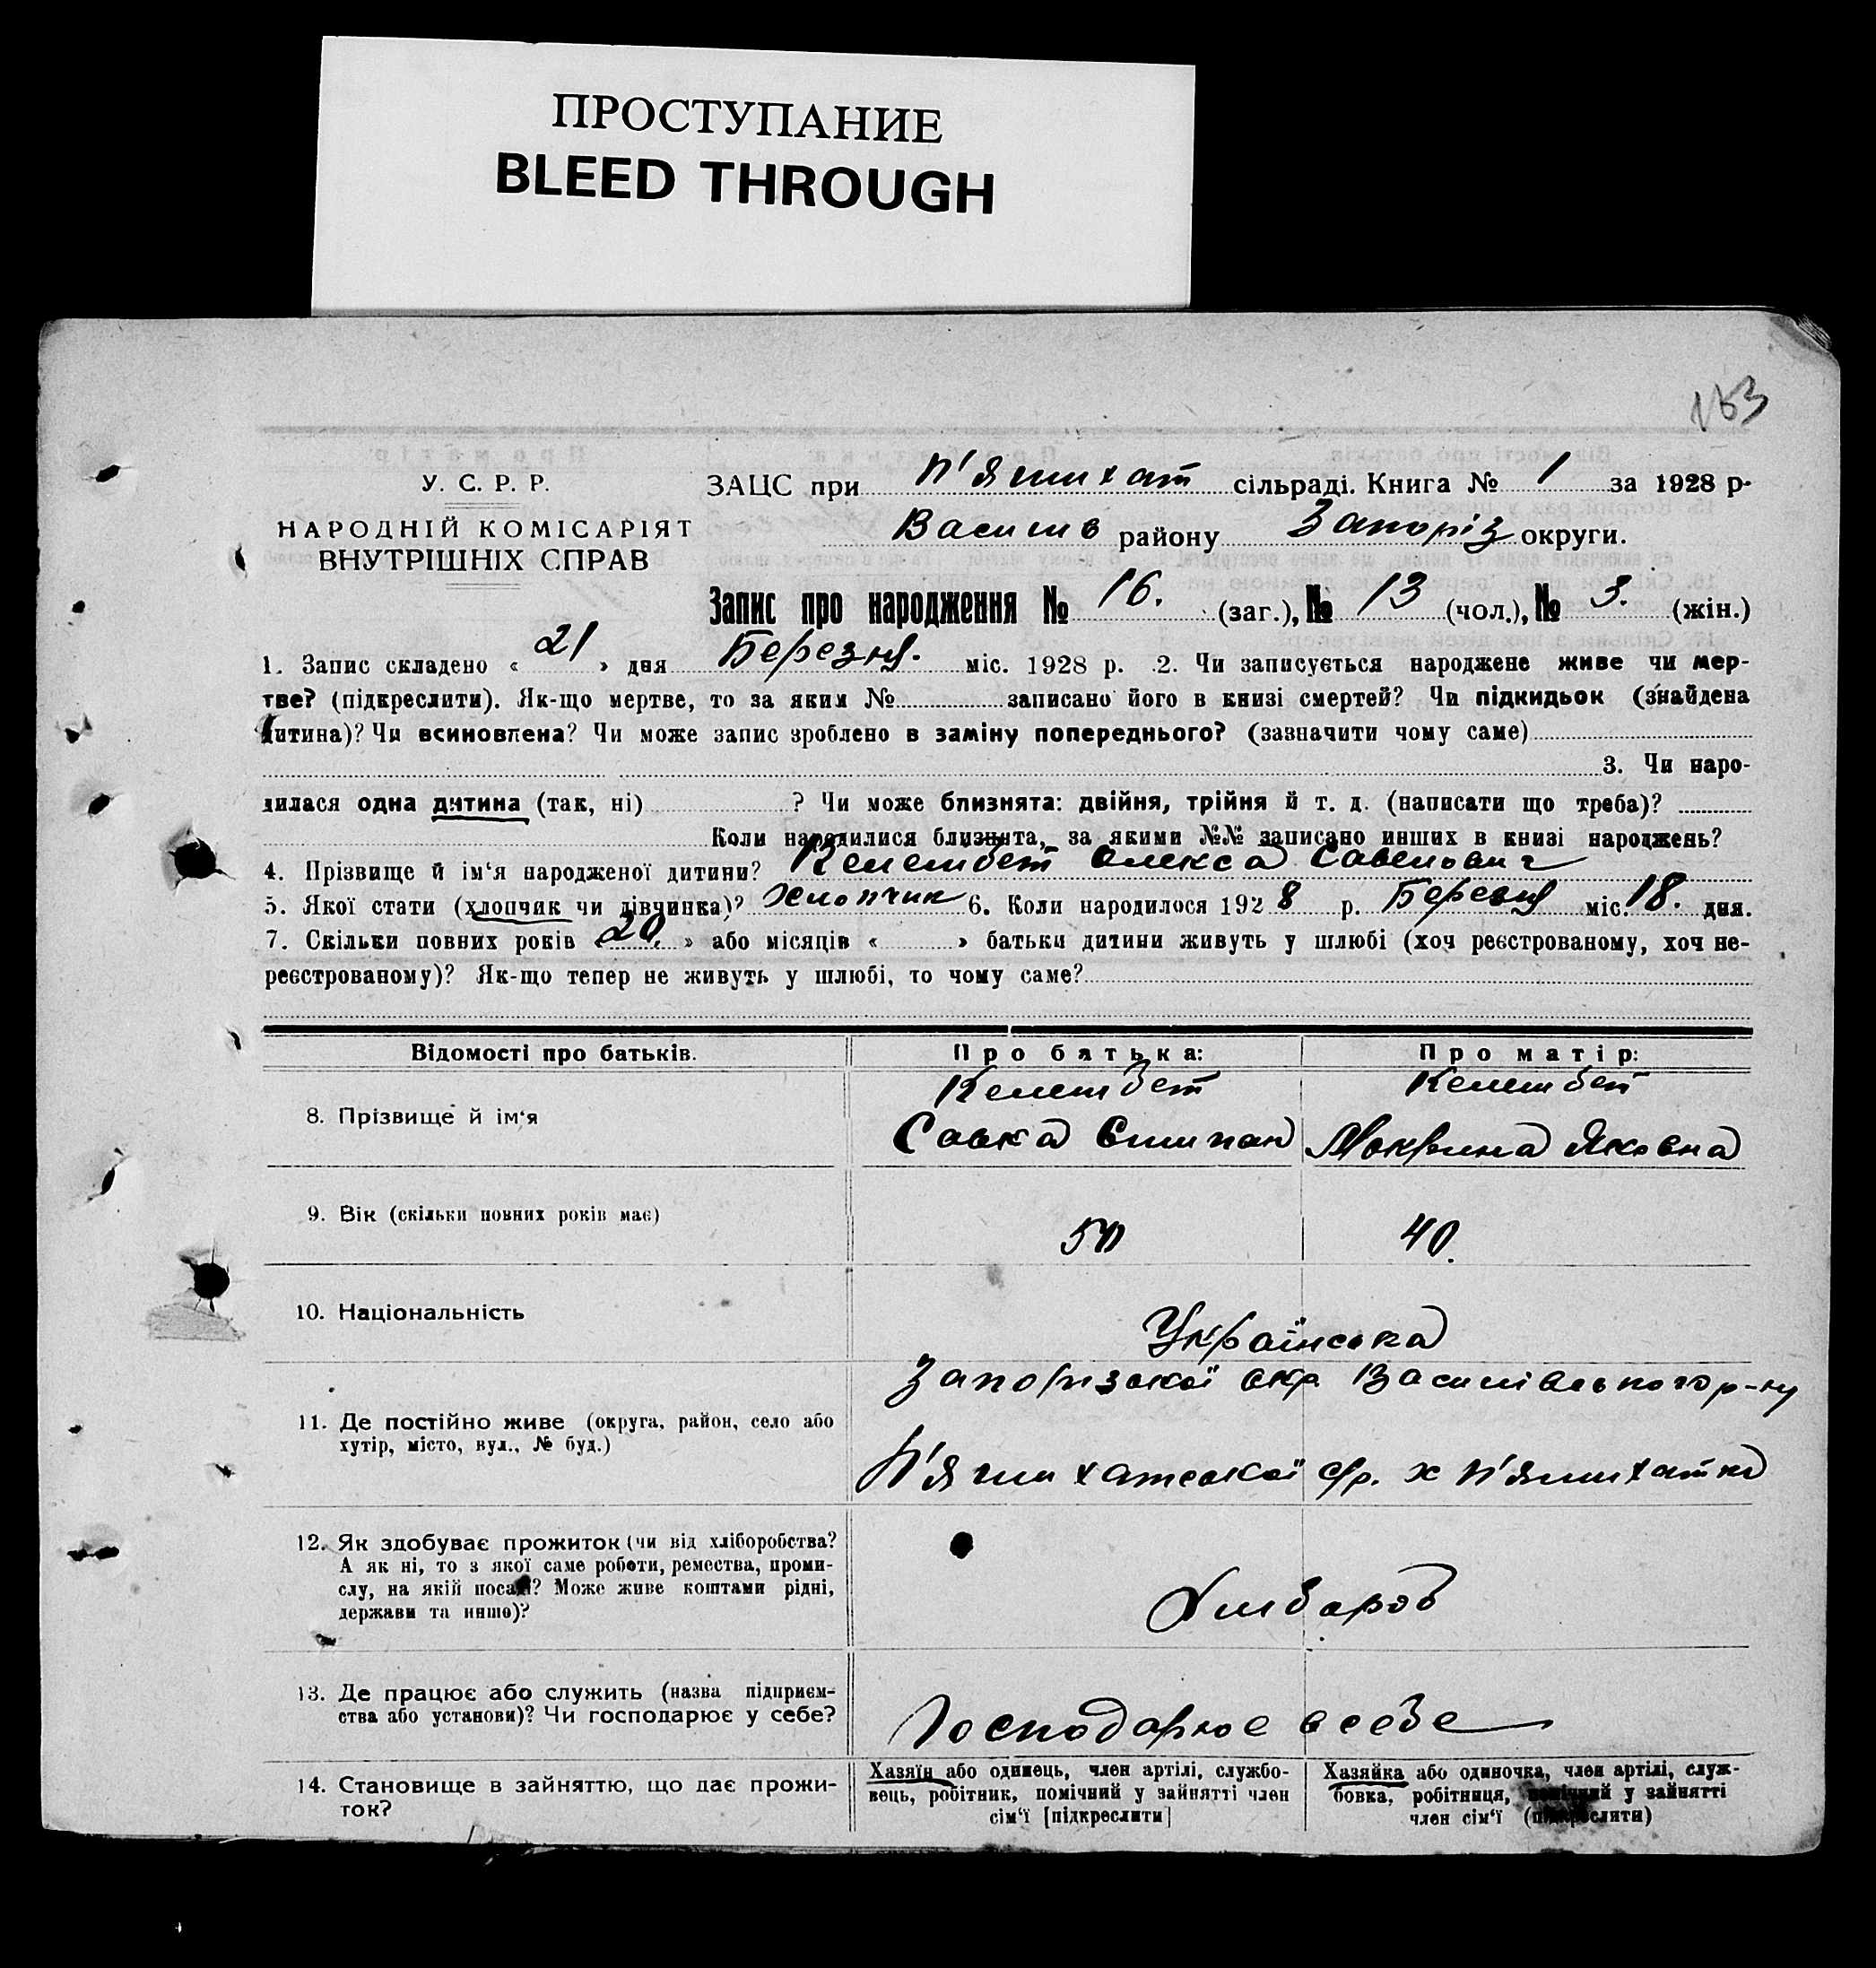 ПРОСТУПАНИЕ
BLEED THROUGH
153
У. С. Р. Р.
НАРОДНІЙ КОМІСАРІЯТ
ВНУТРІШНІХ СПРАВ
ЗАЦС при П'ятихат сільраді. Книга № 1 за 1928 р.
Василів району Запоріз округи.
Запис про народження № 16. (заг.), № 13 (чол.), № 3. (жін.)
1. Запис складено « 21 » дня Березня. міс. 1928 р. 2. Чи записується народжене живе чи мер-
тве? (підкреслити). Як-що мертве, то за яким № записано його в книзі смертей? Чи підкидьок (знайдена
дитина)? Чи всиновлена? Чи може запис зроблено в заміну попереднього? (зазначити чому саме)
3. Чи наро-
дилася одна дитина (так, ні) ? Чи може близнята: двійня, трійня й т. д. (написати що треба)?
Коли народилися близнята, за якими №№ записано инших в книзі народжень?
4. Прізвище й ім'я народженої дитини? Келембет Олекса Савелович
5. Якої стати (хлопчик чи дівчинка)? Хлопчик 6. Коли народилося 1928 р. Березня міс. 18. дня.
7. Скільки повних років « 20. » або місяців « » батьки дитини живуть у шлюбі (хоч реєстрованому, хоч не-
реєстрованому)? Як-що тепер не живуть у шлюбі, то чому саме?
Відомості про батьків. Про батька: Про матір:
8. Прізвище й ім'я
Келембет Келембет
Савка Мокрина Яковна
9. Вік (скільки повних років має)
50 40.
10. Національність
Українська
11. Де постійно живе (округа, район, село або
хутір, місто, вул., № буд.)
Запорізської окр Василівського р-ну
П'ятихатської с/р. х П'ятихатка
12. Як здобуває прожиток (чи від хліборобства?
А як ні, то з якої саме роботи, ремества, проми-
слу, на якій посаді? Може живе коштами рідні,
держави та инше)?
Хлібороб
13. Де працює або служить (назва підприєм-
ства або установи)? Чи господарює у себе?
Господарює в себе
14. Становище в зайняттю, що дає прожи-
ток?
Хазяїн або одинець, член артілі, службо-
вець, робітник, помічний у зайнятті член
сім'ї [підкреслити]
Хазяйка або одиночка, член артілі, служ-
бовка, робітниця, помічний у зайнятті
член сім'ї (підкреслити)